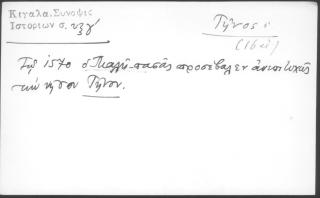 Κιγαλα. Συνοψις
Ιστοριων σ. υξγ´
Τῆνος
(16 αἰ)
Τῷ 1570 ὁ Πιαλῆ-πασᾶς προσέβαλεν ἀνεπιτυχῶς
τὴν νῆσον Τῆνον.